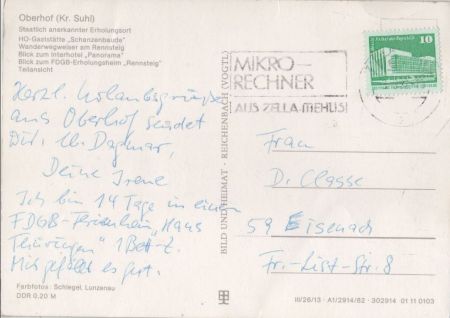 Oberhof (Kr. Suhl)
Staatlich anerkannter Erholungsort
HO-Gaststätte „Schanzenbaude"
Wanderwegweiser am Rennsteig
Blick zum Interhotel „Panorama"
Blick zum FDGB-Erholungsheim „Rennsteig"
Teilansicht
Herzl. Urlaubsgrüße
aus Oberhof sendet
Dir, lb. Dagmar,
Deine Irene
Ich bin 14 Tage in einem
FDGB-Ferienheim, „Haus
Thüringen" 1Bett-Z.
Mir gefällt es gut.
Farbfotos: Schlegel, Lunzenau
DDR 0,20 M
BILD UND HEIMAT · REICHENBACH (VOGTL)
MIKRO-
RECHNER
AUS ZELLA-MEHLIS!
10
Frau
D. Classe
59 Eisenach
Fr.-List-Str. 8
III/26/13 · A1/2914/82 · 302914 01 11 0103